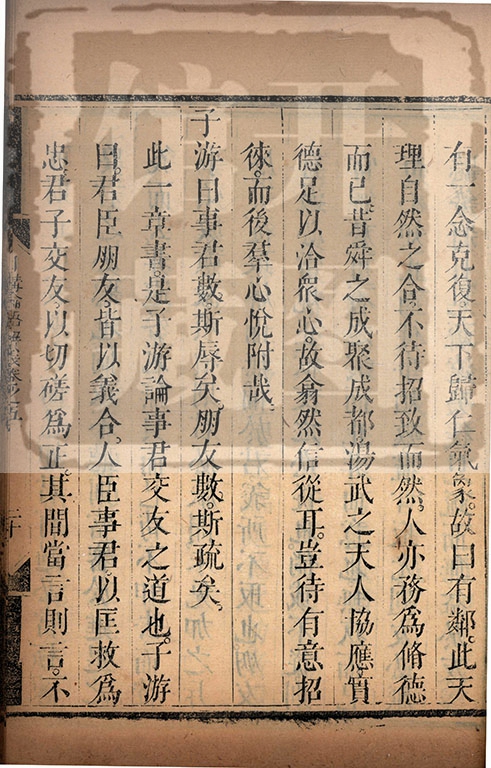 有一念克復天下歸仁氣象。故曰有鄰。此天
理自然之合。不待招致而然。人亦務爲脩德
而已。昔舜之成聚成都。湯武之天人協應。實
德足以洽衆心。故翕然信從耳。豈待有意招
徠。而後羣心悅附哉。
子游曰事君數。斯辱矣。朋友數。斯疏矣。
此一章書。是子游論事君交友之道也。子游
曰。君臣朋友。皆以義合。人臣事君。以匡救爲
忠。君子交友。以切磋爲正。其間當言則言。不
日講論語解義卷之五
二十